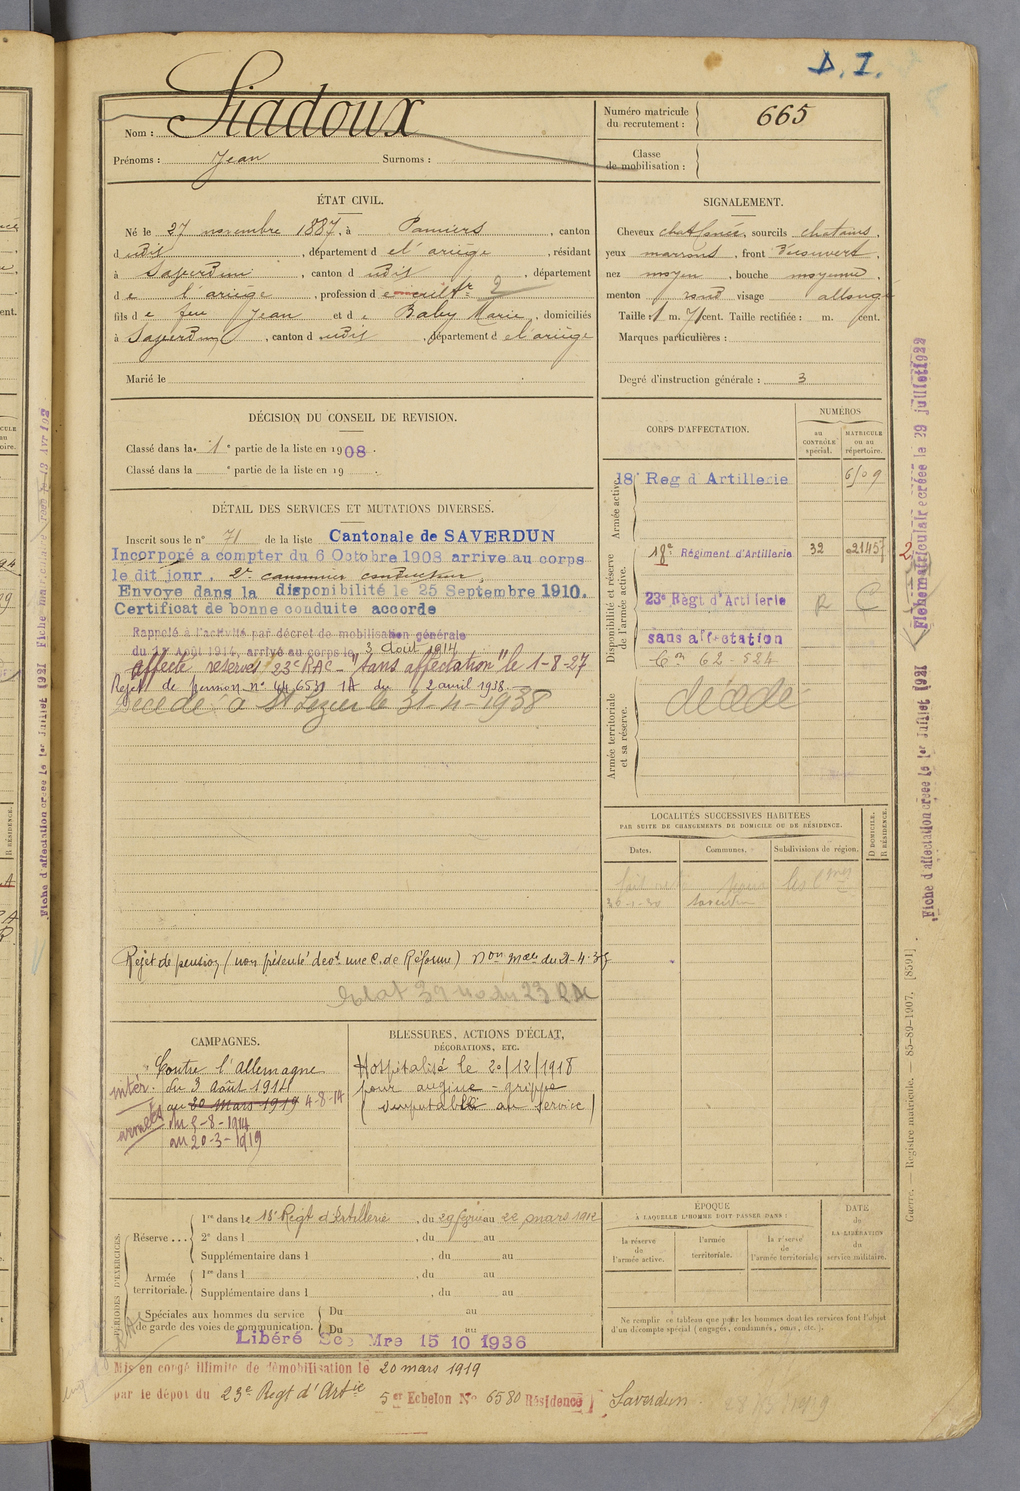 D. I.
Nom : Siadoux
Prénoms : Jean Surnoms :
Numéro matricule du recrutement : 665
Classe de mobilisation :
ÉTAT CIVIL.
Né le 27 novembre 1887, à Pamiers, canton
dudit, département de l'ariège, résidant
à Saverdun, canton dudit, département
de l'ariège, profession de cultr 2
fils de feu Jean et de Baby Marie, domiciliés
à Saverdun, canton dudit, département de l'ariège
Marié le
SIGNALEMENT.
Cheveux chat foncé, sourcils chatains,
yeux marrons, front découvert,
nez moyen, bouche moyenne,
menton rond visage allongé
Taille : 1 m. 71 cent. Taille rectifiée : m. cent.
Marques particulières :
Degré d'instruction générale : 3
DÉCISION DU CONSEIL DE REVISION.
Classé dans la 1e partie de la liste en 1908.
Classé dans la e partie de la liste en 19 .
DÉTAIL DES SERVICES ET MUTATIONS DIVERSES.
Inscrit sous le n° 71 de la liste Cantonale de SAVERDUN
Incorporé a compter du 6 Octobre 1908 arrive au corps
le dit jour, 2e canonnier conducteur,
Envoye dans la disponibilité le 25 Septembre 1910.
Certificat de bonne conduite accorde
Rappelé à l'activité par décret de mobilisation générale
du 1er Août 1914, arrivé au corps le 3 Août 1914
affecté réserves 23e RAC - "sans affectation" le 1-8-27
Rejet de pension n° 446531 1A du 2 avril 1938.
Décédé à St Lizier le 31-4-1938
Rejet de pension (non présenté devt une C. de Réforme)
23 RAC
CORPS D'AFFECTATION.
NUMÉROS
au CONTRÔLE spécial.
MATRICULE ou au répertoire.
Armée active.
18e Reg d Artillerie
Disponibilité et réserve de l'armée active.
18e Régiment d'Artillerie 32 21457
23e Régt d'Artillerie R C
sans affectation
62-524
Armée territoriale et sa réserve.
décédé
LOCALITÉS SUCCESSIVES HABITÉES
PAR SUITE DE CHANGEMENTS DE DOMICILE OU DE RÉSIDENCE.
Dates. Communes. Subdivisions de région.
D. DOMICILE. R. RÉSIDENCE.
Saverdun
CAMPAGNES.
Contre l'Allemagne
intér. du 3 Août 1914
au 20 Mars 1919 4-8-14
armées du 5-8-1914
au 20-3-1919
BLESSURES, ACTIONS D'ÉCLAT,
DÉCORATIONS, ETC.
Hospitalisé le 20/12/1918
pour angine - grippe
(imputable au service)
PÉRIODES D'EXERCICES.
Réserve ... 1re dans le 18e Régt d'Artillerie, du 29 février au 22 mars 1912
2e dans l , du au
Supplémentaire dans l , du au
Armée territoriale. 1re dans l , du au
Supplémentaire dans l , du au
Spéciales aux hommes du service de garde des voies de communication. Du au
Du
Libéré Sce Mre 15 10 1936
ÉPOQUE
À LAQUELLE L'HOMME DOIT PASSER DANS :
la réserve de l'armée active.
l'armée territoriale.
la réserve de l'armée territoriale.
DATE de LA LIBÉRATION du service militaire.
Ne remplir ce tableau que pour les hommes dont les services font l'objet
d'un décompte spécial (engagés, condamnés, omis, etc.).
Mis en congé illimité de démobilisation le 20 mars 1919
par le dépot du 23e Regt d'Artie 5er Echelon No 6580 Résidence Saverdun
Fiche matriculaire créée le 29 juillet 1922
Fiche d'affectation créée le 1er Juillet 1921
Guerre. — Registre matricule. — 85-89-1907. [8591].